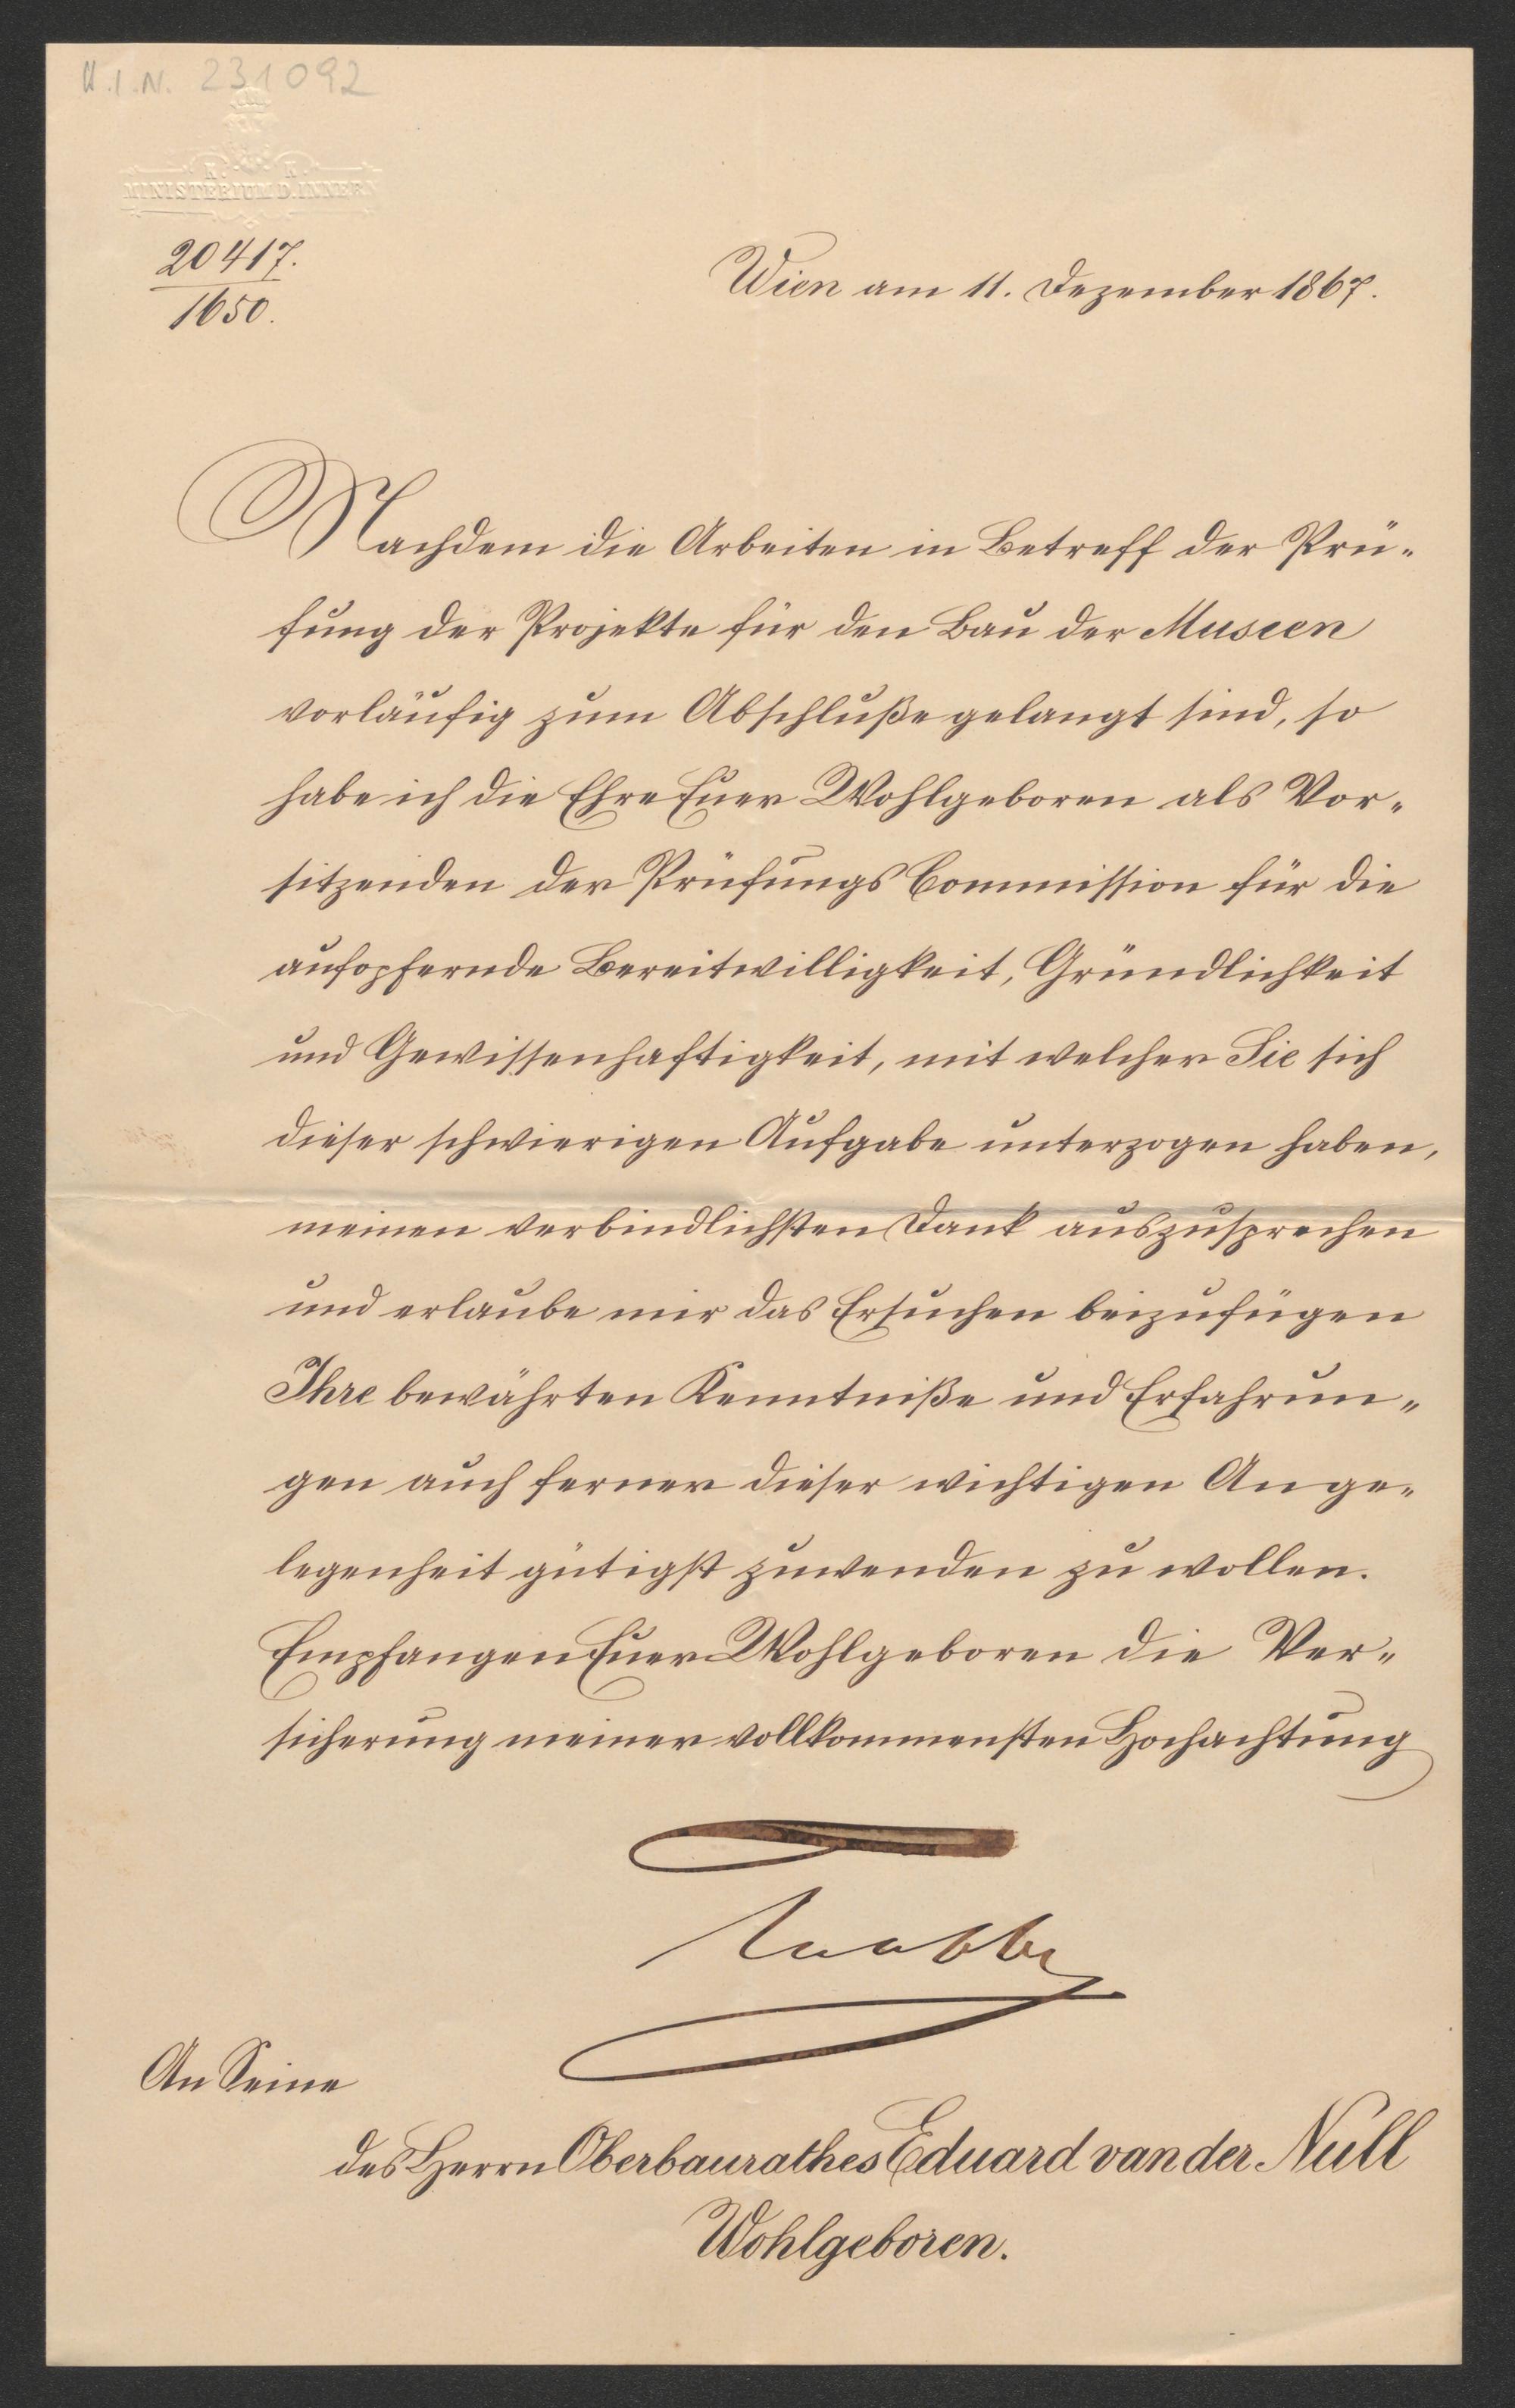 H.I.N. 231092
K. K.
MINISTERIUM D. INNERN
20417.
1650.
Wien am 11. Dezember 1867.
Nachdem die Arbeiten in Betreff der Prü-
fung der Projekte für den Bau der Museen
vorläufig zum Abschluße gelangt sind, so
habe ich die Ehre Euer Wohlgeboren als Vor-
sitzenden der Prüfungs Commission für die
aufopfernde Bereitwilligkeit, Gründlichkeit
und Gewissenhaftigkeit, mit welcher Sie sich
dieser schwierigen Aufgabe unterzogen haben,
meinen verbindlichsten Dank auszusprechen
und erlaube mir das Ersuchen beizufügen
Ihre bewährten Kenntniße und Erfahrun-
gen auch ferner dieser wichtigen Ange-
legenheit gütigst zuwenden zu wollen.
Empfangen Euer Wohlgeboren die Ver-
sicherung meiner vollkommensten Hochachtung
An Seine
des Herrn Oberbaurathes Eduard van der Null
Wohlgeboren.